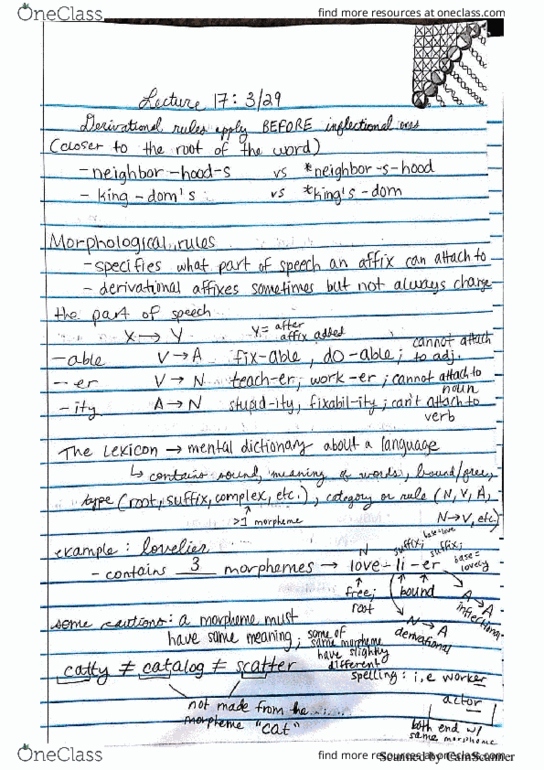 OneClass
find more resources at oneclass.com
Lecture 17: 3/29
Derivational rules apply BEFORE inflectional ones
(closer to the root of the word)
- neighbor-hood-s vs *neighbor-s-hood
- king-dom's vs *king's-dom
Morphological rules
- specifies what part of speech an affix can attach to
- derivational affixes sometimes but not always change
the part of speech
X → Y Y = after affix added
-able V → A fix-able, do-able; cannot attach to adj.
-er V → N teach-er, work-er; cannot attach to noun
-ity A → N stupid-ity, fixabil-ity; can't attach to verb
The Lexicon → mental dictionary about a language
↳ contains sound, meaning of words, bound/free,
type (root, suffix, complex, etc.), category or rule (N, V, A,
>1 morpheme N→V, etc.)
example: lovelier
base=love
N suffix; suffix; base=lovely
- contains 3 morphemes → love-li-er
free; root bound A→A inflecting
N→A derivational
some cautions: a morpheme must
have same meaning; some of same morpheme have slightly different
spelling: i.e worker
catty ≠ catalog ≠ scatter
actor
not made from the
morpheme "cat"
both end w/ same morpheme
OneClass
find more resources at oneclass.com
Scanned by CamScanner